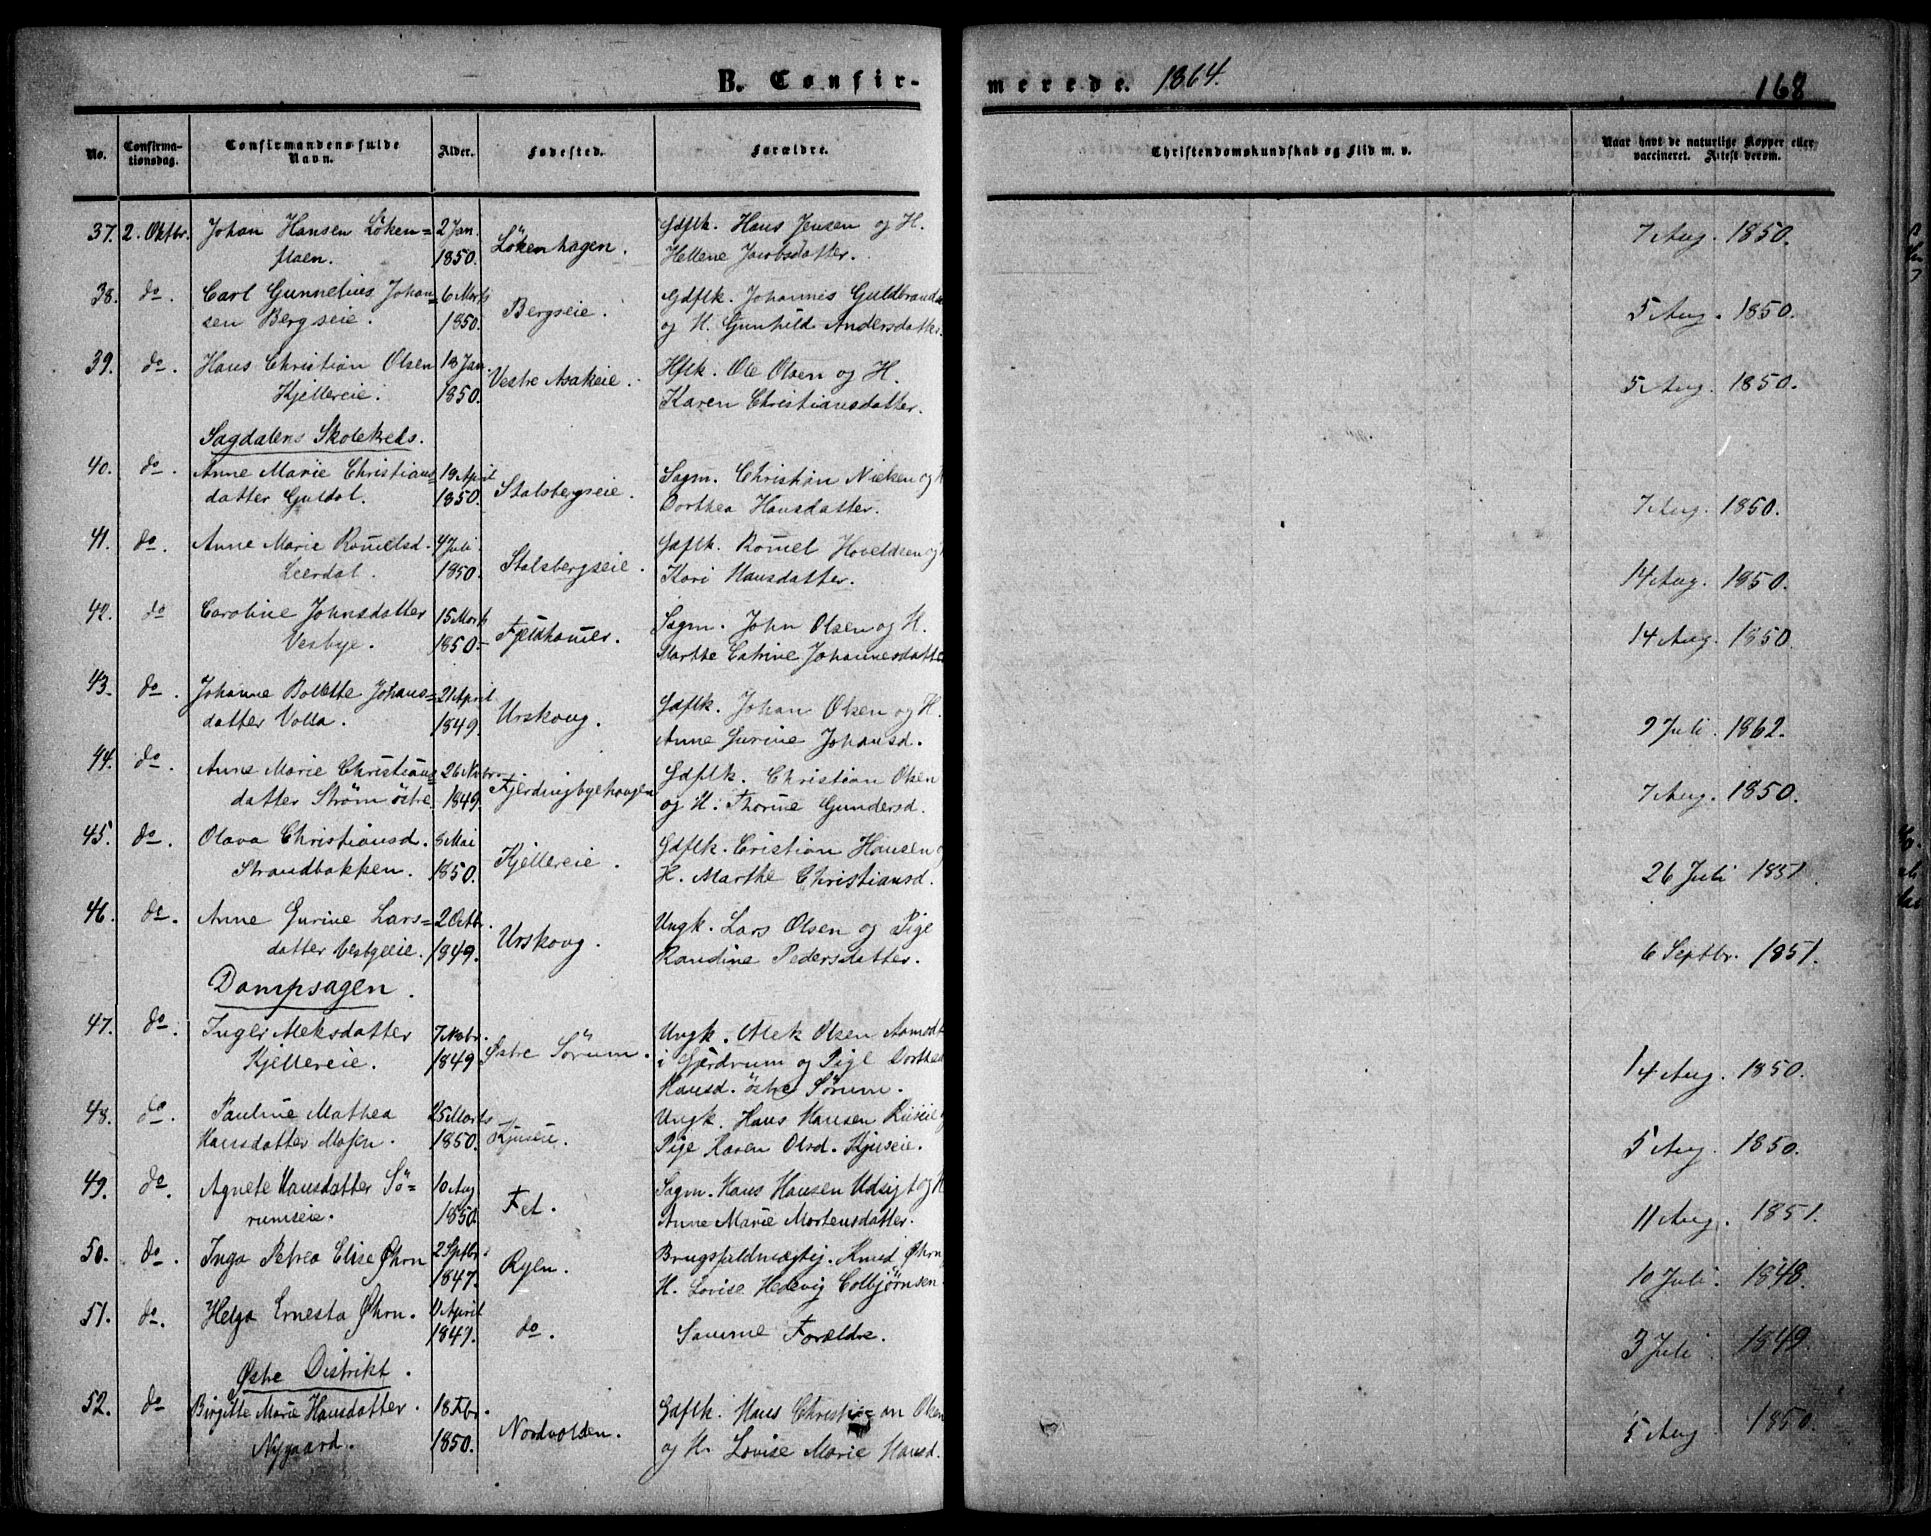 B. Confirmerede. 1864. 168
No. Confirmationsdag. Confirmandens fulde Navn. Alder. Fødested. Forældre. Christendomskundskab og Flid m. v. Naar havt de naturlige Kopper eller vaccineret. Attest derom.
37. 2. Oktbr. Johan Hansen Løken= 2 Jan. Løkenhagen. Gdflk. Hans Jensen og H. 7 Aug. 1850.
floen. 1850. Hellene Jacobsdatter.
38. do. Carl Gunnelius Johan= 6 Marts Bergseie. Gdflk. Johannis Guldbrands 5 Aug. 1850.
sen Bergseie. 1850. og H. Gunhild Andersdatter.
39. do. Hans Christian Olsen 18 Jan. Vestre Asakeie. Hflk. Ole Olsen og H. 5 Aug. 1850.
Kjellereie. 1850. Karen Christiansdatter.
Sagdalens Skolekreds.
40. do. Anne Marie Christians= 19 April Stalsbergseie. Sagm. Christian Nielsen og H
datter Guldal. 1850. Dorthea Hansdatter. 7 Aug. 1850.
41. do. Anne Marie Romelsd. 4 Juli Stalsbergseie. Gdflk. Romel Hoveldsen og
Leerdal. 1850. Kari Hansdatter. 14 Aug. 1850.
42. do Caroline Johnsdatter 15 Marts Fjeldhamer. Sagm. John Olsen og H.
Vesbye. 1850 Marthe Catrine Johannesdatter 14 Aug. 1850.
43. do. Johanne Bolette Johans= 21 April Urskoug. Gdflk. Johan Olsen og H.
datter Volla. 1849. Anne Gurine Johansd. 9 Juli. 1862.
44. do. Anne Marie Christians= 26 Novbr. Fjerdingbyehougen Gdflk. Christian Olsen
datter Strøm østre. 1849. og H. Thorine Gundersd. 7 Aug. 1850.
45. do. Olava Christiansd. 8 Mai Kjellereie. Gdflk. Cristian Hansen
Strandbakken. 1850. H. Marthe Christiansd. 26 Juli 1851.
46. do. Anne Gurine Lars= 2 Octbr. Urskoug. Ungk. Lars Olsen og Pige
datter Vesbyeie. 1849. Randine Pedersdatter. 6 Septbr. 1851.
Dampsagen.
47. do. Inger Aleksdatter 7 Novbr. Østre Sørum. Ungk. Alek Olsen Aamodt
Kjellereie. 1849 i Gjerdrum og Pige Dorthea 14 Aug. 1850.
Hansd. østre Sørum.
48. do. Pauline Mathea 25 Marts Kjuseie. Ungk. Hans Hansen
Hansdatter Mosen. 1850. Pige Karen Olsd. Kjuseie. 5 Aug. 1850.
49. do. Agnete Hansdatter Sø= 10 Aug Fet. Sagm. Hans Hansen Udsigt og H
rumseie. 1850. Anne Marie Mortensdatter. 11 Aug. 1851.
50. do. Inga Petrea Elise Øhrn 2 Septbr. Ryen. Brugsfuldmægtig. Knud Øhrn
1847. H. Lovise Hedevig Colbjørnsen. 10 Juli. 1848.
51. do. Helga Ernesta Øhrn. April do. Samme Forældre.
1849. 3 Juli. 1849.
Østre Distrikt.
52. do Birgitte Marie Hansdatter. 18 Febr. Nordvolden. Gdflk. Hans Christian Olsen
Nygaard. 1850. og H. Lovise Marie Hansd. 5 Aug. 1850.